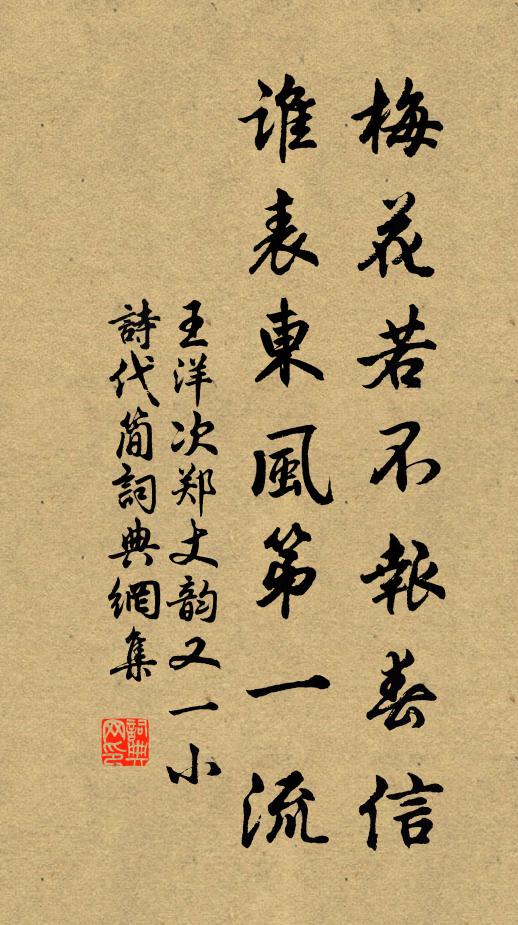 梅花若不報春信
誰表東風第一流
王洋次郑丈韵又一小
詩代简詞典網集
詞典网印